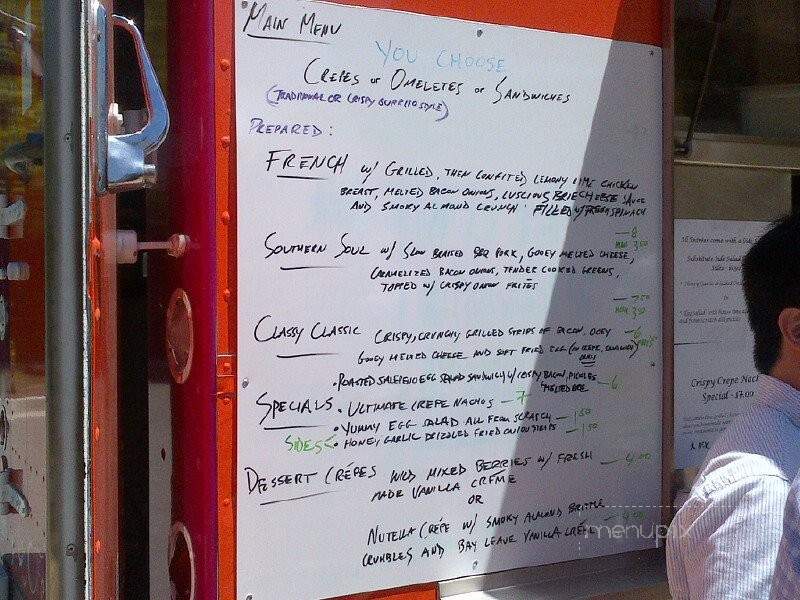 MAIN MENU
YOU CHOOSE
CREPES or OMELETES or SANDWICHES
(TRADITIONAL OR CRISPY BURRITO STYLE)
PREPARED:
FRENCH w/ GRILLED, THEN CONFITED LEMONY LIME CHICKEN
BREAST, MELTED BACON ONIONS, LUSCIOUS BRIE CHEESE SAUCE
AND SMOKY ALMOND CRUNCH FILLED w/ FRESH SPINACH
— 8
MINI 3.50
SOUTHERN SOUL w/ SLOW BRAISED BBQ PORK, GOOEY MELTED CHEESE,
CARAMELIZED BACON ONIONS, TENDER COOKED GREENS,
TOPPED w/ CRISPY ONION FRITES
— 7.50
MINI 3.50
CLASSY CLASSIC CRISPY, CRUNCHY GRILLED STRIPS OF BACON, OOEY — 6
GOOEY MELTED CHEESE AND SOFT FRIED EGG
• ROASTED EGG SALAD SANDWICH w/ CRISPY BACON, PICKLES — 6
SPECIALS • ULTIMATE CREPE NACHOS — 7
• YUMMY EGG SALAD ALL FROM SCRATCH — 1.50
SIDES • HONEY GARLIC DRIZZLED FRIED ONION STRIPS — 1.50
DESSERT CRÉPES WILD MIXED BERRIES w/ FRESH — 4.00
MADE VANILLA CRÉME
OR
NUTELLA CRÉPE w/ SMOKY ALMOND BRITTLE
CRUMBLES AND BAY LEAVE VANILLA CRÉME
menupix
All Entrees come with a Side
Substitute Side Salad
Crispy Crepe Nachos
Special - $7.00